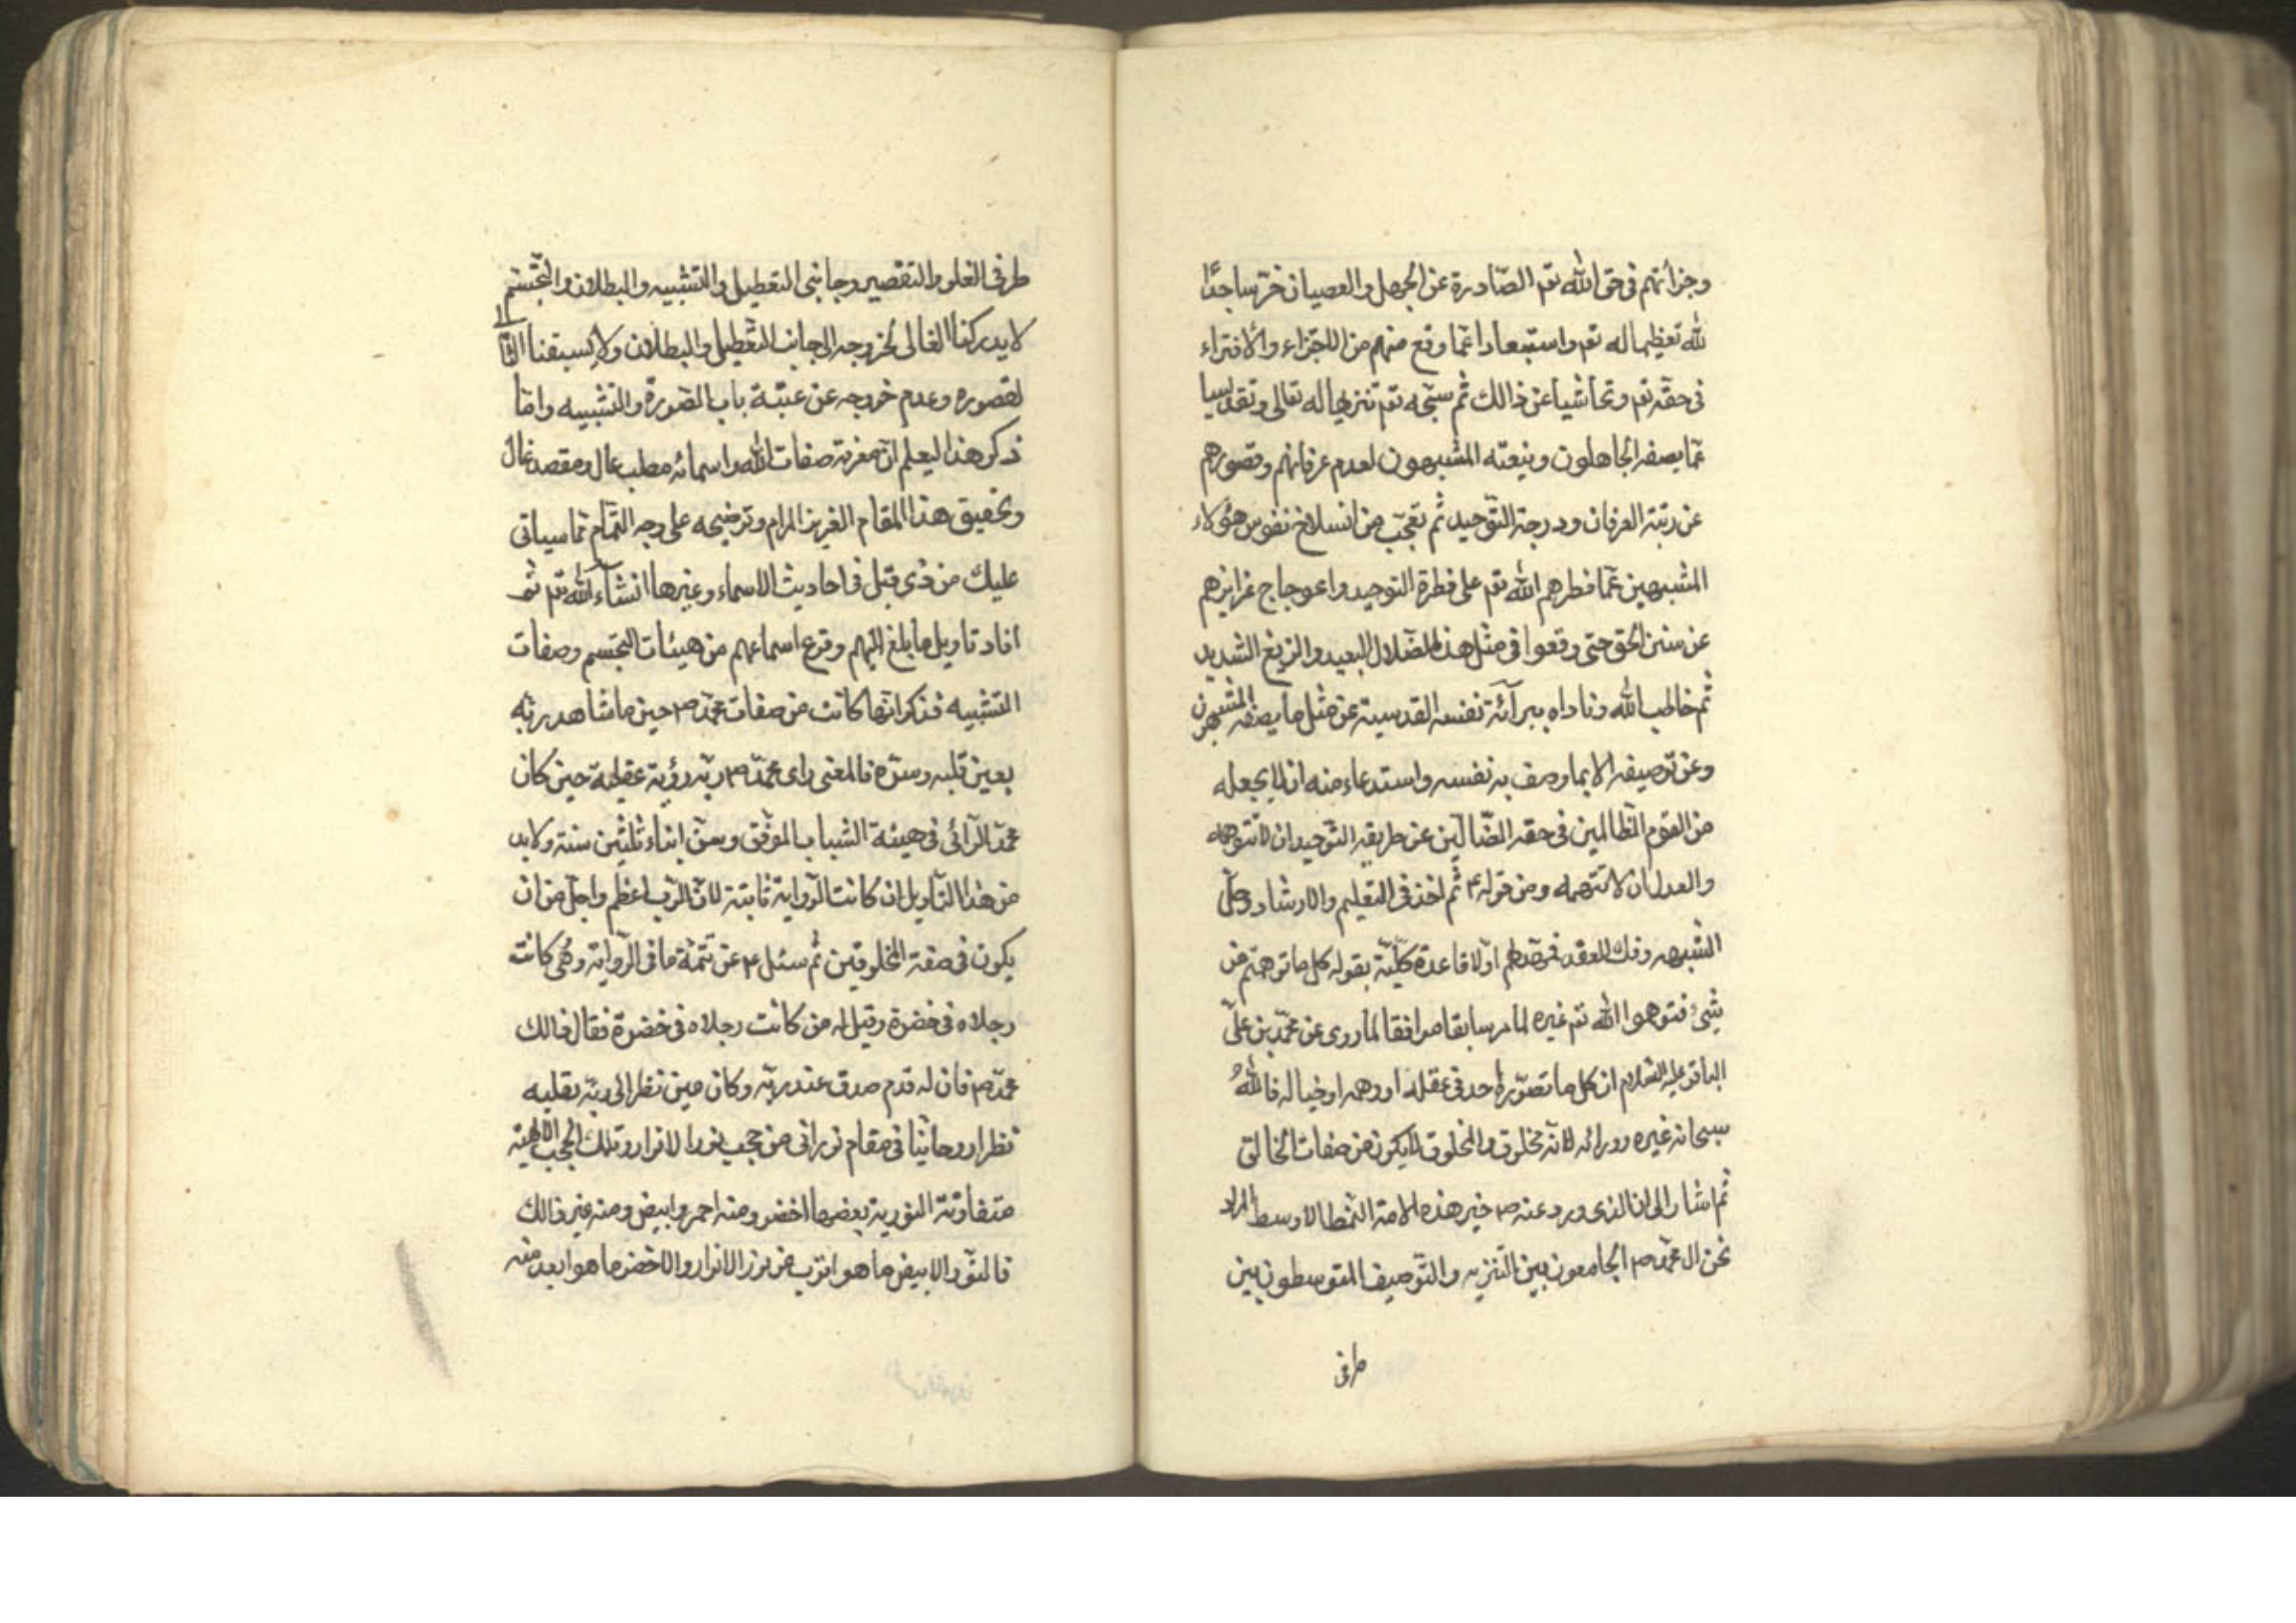 وجرأتهم فى حق الله تم الصّادرة عن الجهل والعصيان خرّ ساجدًا
لله تعظيما له تم واستبعادا عمّا وقع منهم من الاجتراء والافتراء
فى حقه تم وتحاشيا عن ذالك ثم سبّحه تم تنزيها له تعالى وتقديسا
عمّا يصفه الجاهلون وينعته المشبهون لعدم عرفانهم وقصورهم
عن رتبة العرفان ودرجة التوّحيد ثم تعجّب من انسلاخ نفوس هؤلاء
المشبهين عمّا فطرهم الله تم على فطرة التوحيد واعوجاج غرايزهم
عن سنن الحق حتى وقعوا فى مثل هذا الضّلال البعيد والزيغ الشديد
ثم خاطب الله وناداه ببرآئة نفسه القدسية عن مثل ما يصفه المشبهون
وعن توصيفه الا بما وصف به نفسه واستدعاء منه ان لا يجعله
من القوم الظالمين فى حقه الضّالين عن طريقه التوّحيد ان لا تتوهمه
والعدل ان لا تتهمه ومن قوله ع ثم اخذ فى التعليم والارشاد وحلّ
الشبهه وفك العقد فمهّد لهم اوّلا قاعدة كليّة بقوله كل ما توهمتم من
شئ فتوهموا الله تم غيره لما مر سابقا موافقا لما روى عن محمّد بن علىّ
الباقر عليه السّلام ان كل ما تصوّره احد فى عقله او وهمه او خياله فالله
سبحانه غيره وورائه لانّه مخلوق والمخلوق لا يكون من صفات الخالق
ثم اشار الى ان الذى ورد عنه ص خير هذه الامة النّمط الاوسط المراد
نحن ال محمّد ص الجامعون بين التنزيه والتوّصيف المتوسطون بين
طرفى
طرفى الغلو والتقصير وجانبى التعطيل والتشبيه والبطلان والتجّسّم
لا يدركنا الغالى لخروجه الى جانب التعطيل والبطلان ولا يسبقنا التّا
لقصوره وعدم خروجه عن عتبة باب الصّورة والتشبيه وامّا
ذكر هذا ليعلم ان معرفة صفات الله واسمائه مطلب عال ومقصد غال
وتحقيق هذا المقام العزيز المرام وتوضيحه على وجه التّمام ممّا سياتى
عليك من ذى قبل فى احاديث الاسماء وغيرها انشآء الله تم ثم
افاد تاويل ما بلغ اليهم وقرع اسماعهم من هيئات التجسم وصفات
التشبيه فذكر انّها كانت من صفات محمّد ص حين ما شاهد ربّه
بعين قلبه وسرّه فالمعنى راى محمّد ص ربّه رؤية عقلية حين كان
محمّد الرّائى فى هيئة الشباب الموفّق وسنّ ابناء ثلثين سنة ولابد
من هذا التّأويل ان كانت الرّواية ثابتة لانّ الرّب اعظم واجلّ من ان
يكون فى صفة المخلوقين ثم سئل ع عن تتمّة ما فى الرّواية وهى كانت
رجلاه فى خضرة وقيل له من كانت رجلاه فى خضرة فقال ذالك
محمّد ص فان له قدم صدق عند ربّه وكان حين نظر الى ربّه بقلبه
نظرا روحانيّا فى مقام نورانى من حجب نور الانوار وتلك الحجب الالهيّة
متفاوتة النوّرية بعضها اخضر ومنه احمر وابيض ومنه غير ذالك
فالنوّر الابيض ما هو اقرب من نور الانوار والاخضر ما هو ابعد منه